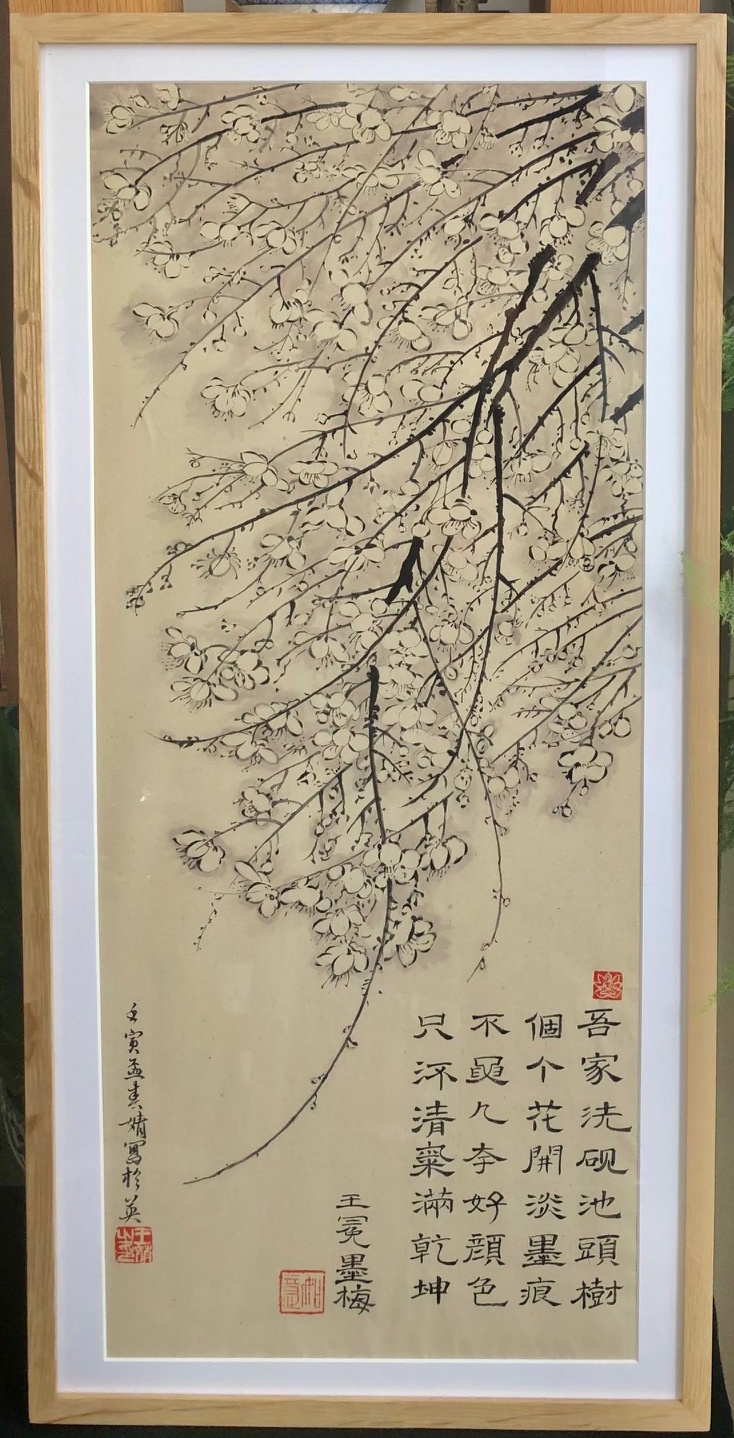 吾家洗砚池頭樹
個个花開淡墨痕
不要人夸好顔色
只流清氣滿乾坤
王冕墨梅
如意
壬寅孟春婧寫於英
王婧之印